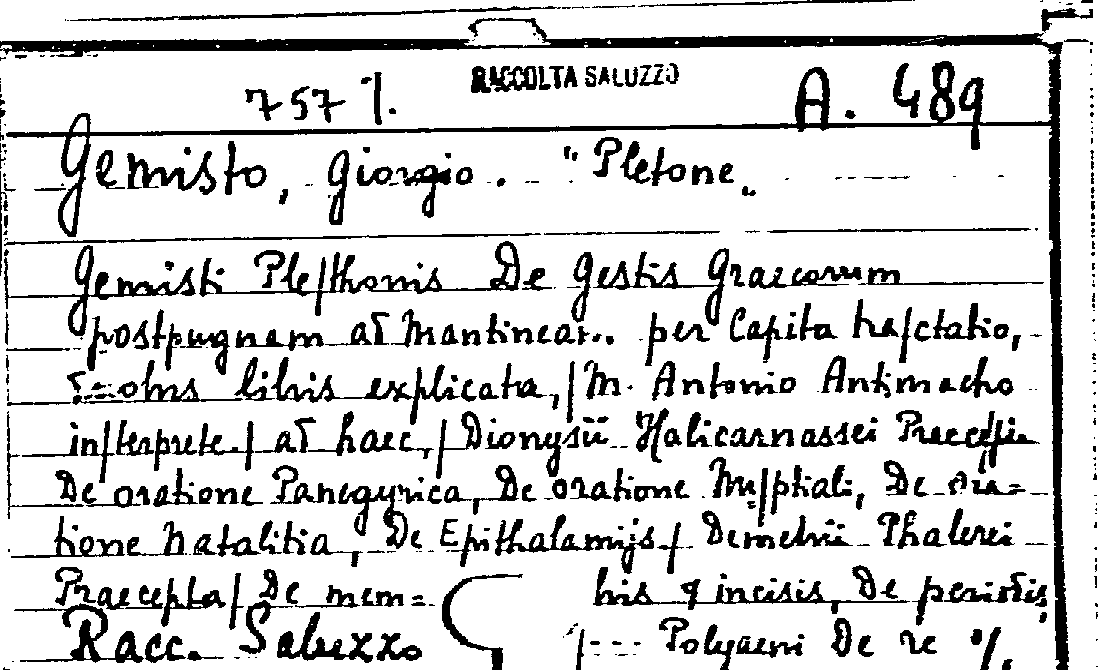 RACCOLTA SALUZZO
757 1. A. 489
Gemisto, Giorgio. "Pletone„
Gemisti Ple/thonis De Gestis Graecorum
post pugnam ad Mantinean.. per Capita tra/ctatio,
libris explicata,/ M. Antonio Antimacho
in/terprete./ ad haec,/ Dionysii Halicarnassei
De oratione Panegyrica, De oratione Nu/ptiali, De ora=
tione Natalitia, De Epithalamijs./ Demetrii Phalerei
Praecepta/ De mem= bris & incisis, De periodis,
Racc. Saluzzo /--- Polyaeni De re ·/.